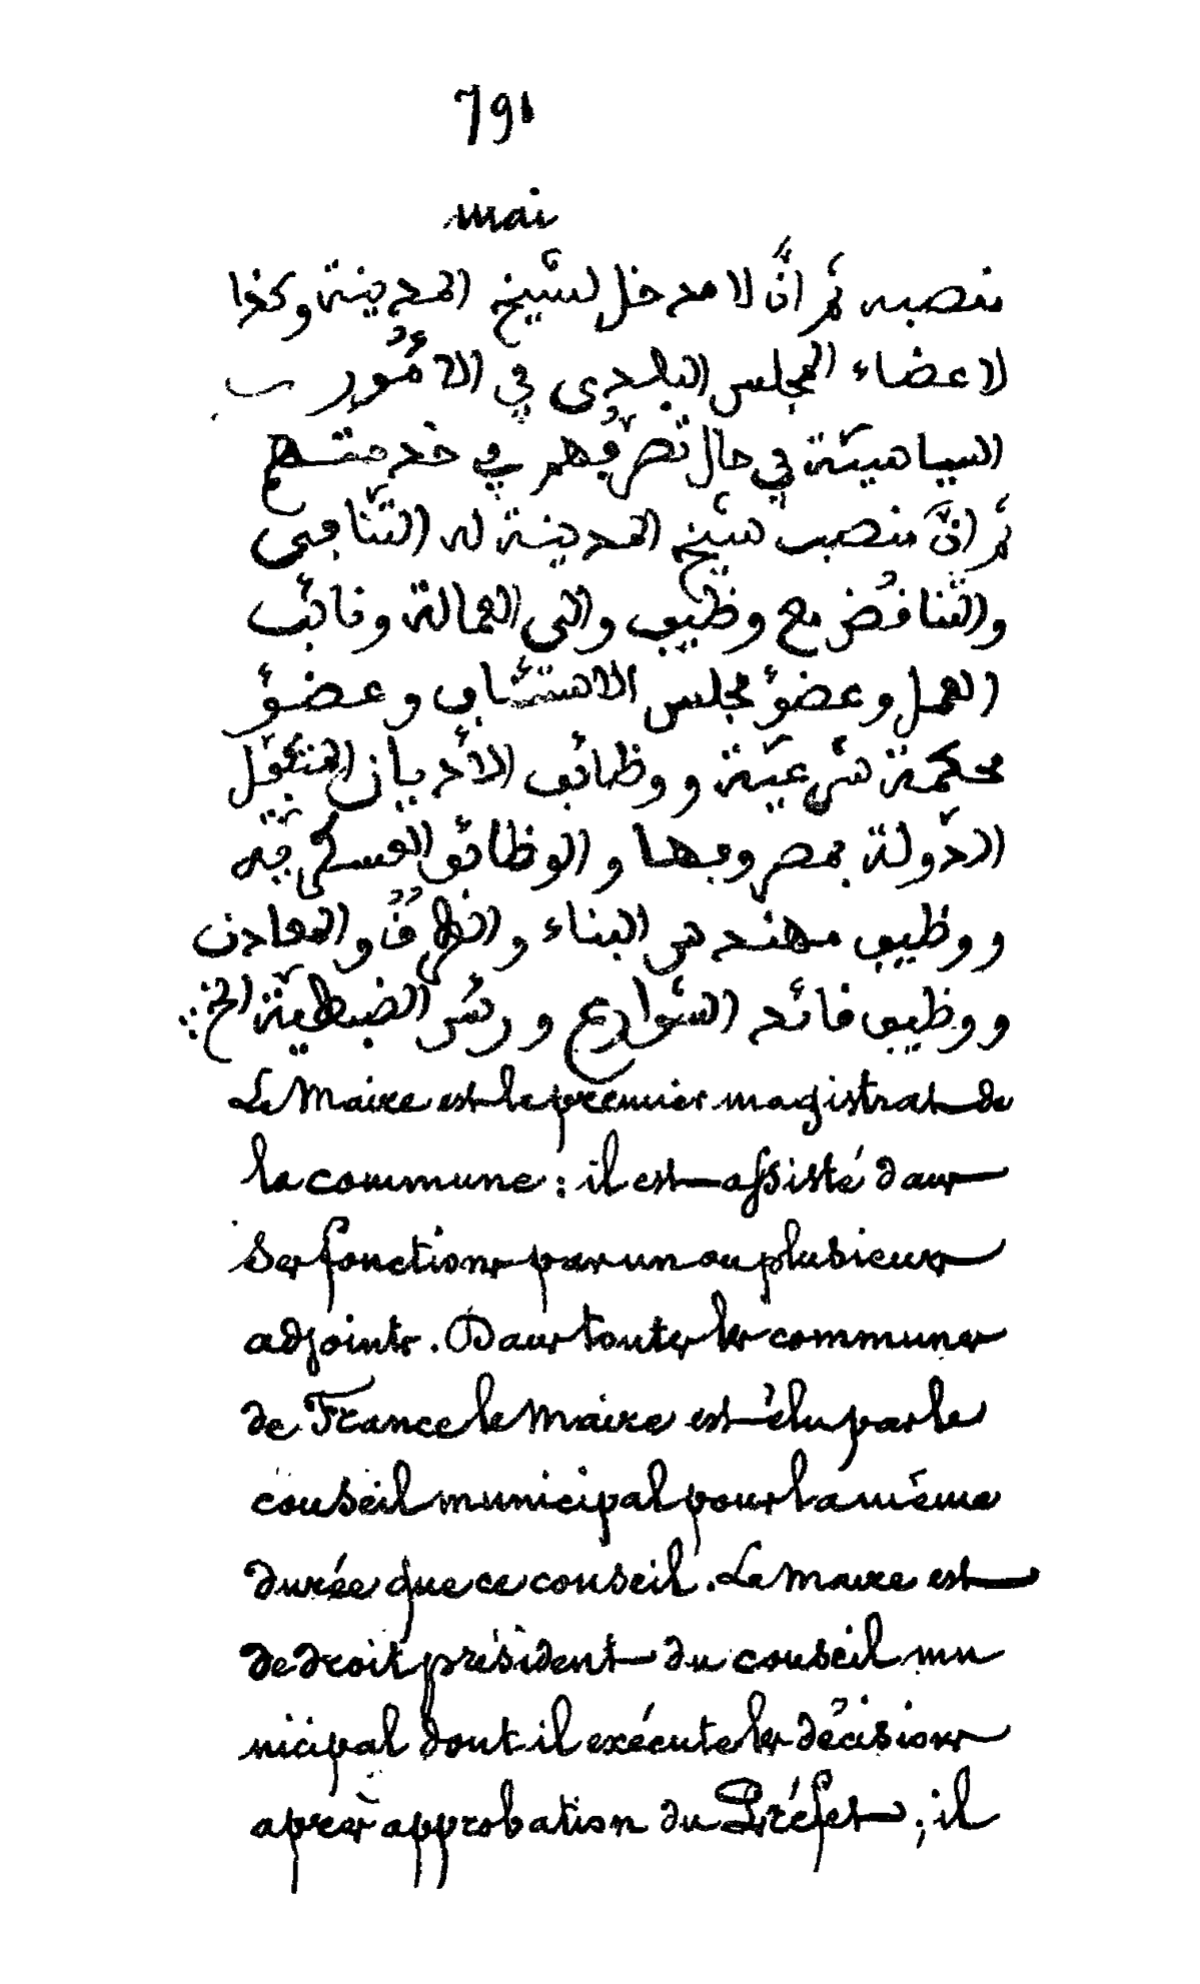 791
mai
منصبه ثم انَّ لا مدخل لشيخ المدينة وكذا
لاعضاء المجلس البلدى في الامُور
السياسيّة في حال تصرّفهم في خدمتهم
ثم انَّ منصب شيخ المدينة له التّنافى
والتّناقُض مع وظيف والى العمالة ونائب
العمل وعضوُ مجلس الاستئناف وعضوُ
محكمة شرعيّة ووظائف الأديان المتكفّل
الدّولة بمصروفها والوظائف العسكريّة
ووظيف مهندس البناء والطرُق والمعادن
ووظيف قائد الشوارع ورئس الضبطيّة الخ
Le Maire est le premier magistrat de
la commune : il est assisté dans
ses fonctions par un ou plusieurs
adjoints. Dans toutes les communes
de France le Maire est élu par le
conseil municipal pour la même
durée que ce conseil. Le Maire est
de droit président du conseil mu
nicipal dont il exécute les décisions
après approbation du Préfet ; il